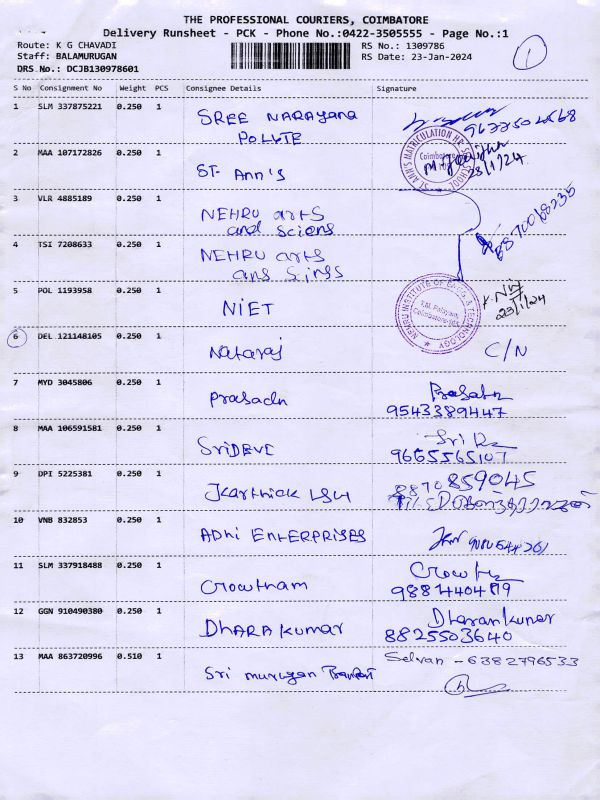 THE PROFESSIONAL COURIERS, COIMBATORE
Delivery Runsheet - PCK - Phone No.:0422-3505555 - Page No.:1
1
Route: K G CHAVADI
RS No.: 1309786
Staff: BALAMURUGAN
RS Date: 23-Jan-2024
DRS No.: DCJB130978601
S No Consignment No Weight PCS Consignee Details Signature
1 SLM 337875221 0.250 1 SREE NARAYANA
POLYTE
2 MAA 107172826 0.250 1 ST. Ann's
ST. ANN'S MATRICULATION HR. SEC. SCHOOL
Coimbatore
23/1/24
3 VLR 4885189 0.250 1 NEHRU arts
and sciens
4 TSI 7208633 0.250 1 NEHRU arts
5 POL 1193958 0.250 1 NIET
NEHRU INSTITUTE OF ENGG. & TECHNOLOGY
T.M. Palayam,
Coimbatore-105
23/1/24
6 DEL 121148105 0.250 1 Nataraj C/N
7 MYD 3045806 0.250 1 Prasadn
9543389447
8 MAA 106591581 0.250 1 SRIDEVI
9665565107
9 DPI 5225381 0.250 1 Karthick
8870859045
10 VNB 832853 0.250 1 ADhi ENTERPRISES
11 SLM 337918488 0.250 1 Crowtham
12 GGN 910490380 0.250 1 DHARAkumar Dharankumar
8825503640
13 MAA 863720996 0.510 1 Sri murugan Selvan - 6382796533